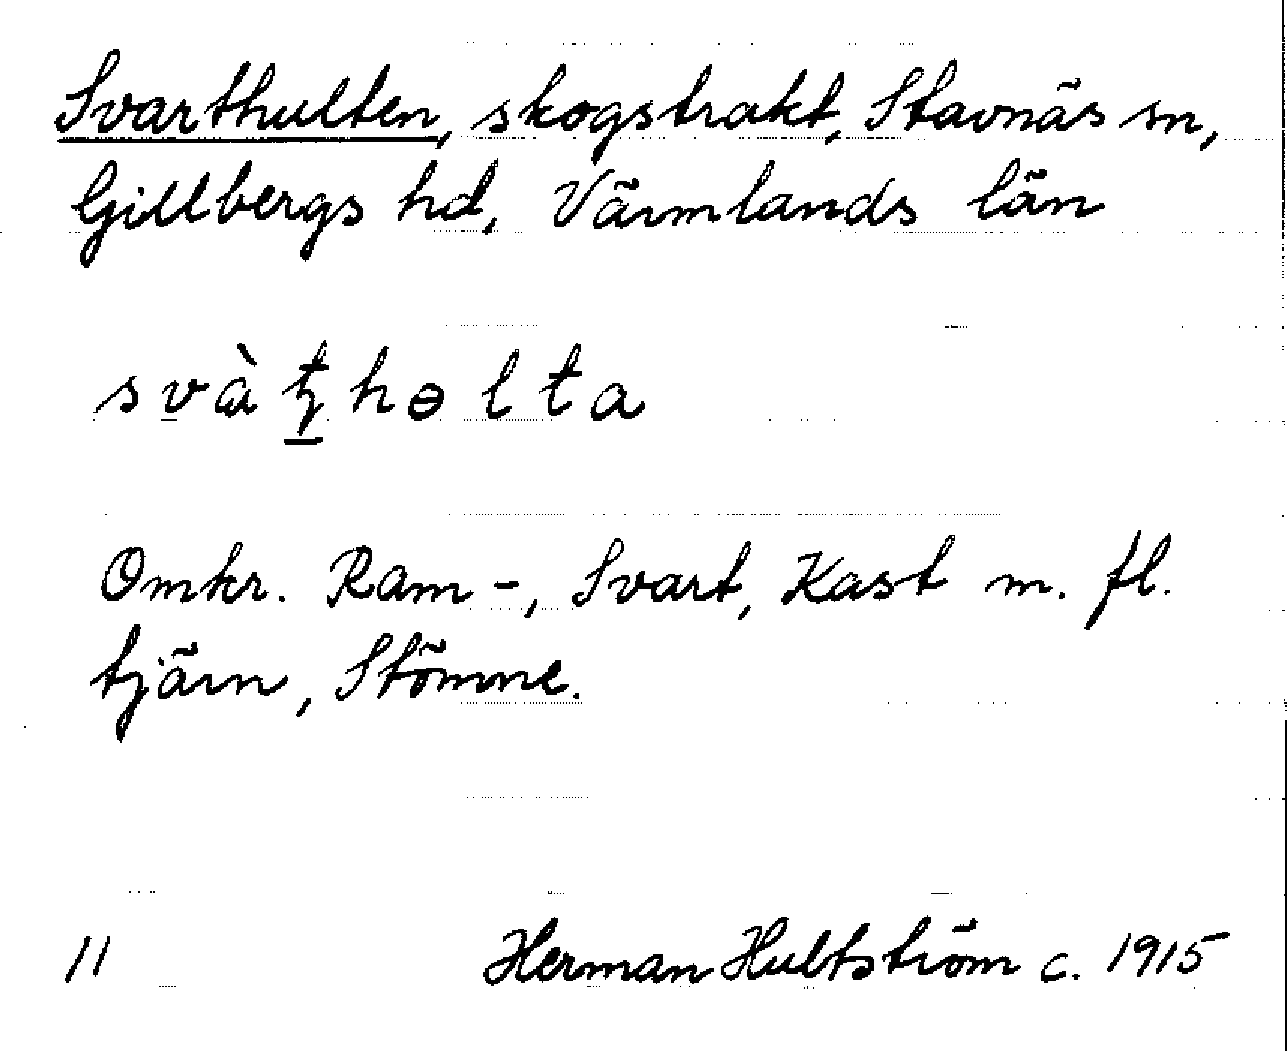 Svarthulten, skogstrakt, Stavnäs sn,
Gillbergs hd, Värmlands län
svàʈhɵlta
Omkr. Ram-, Svart, Kast m. fl.
tjärn, Stömne.
11 Herman Hultström c. 1915